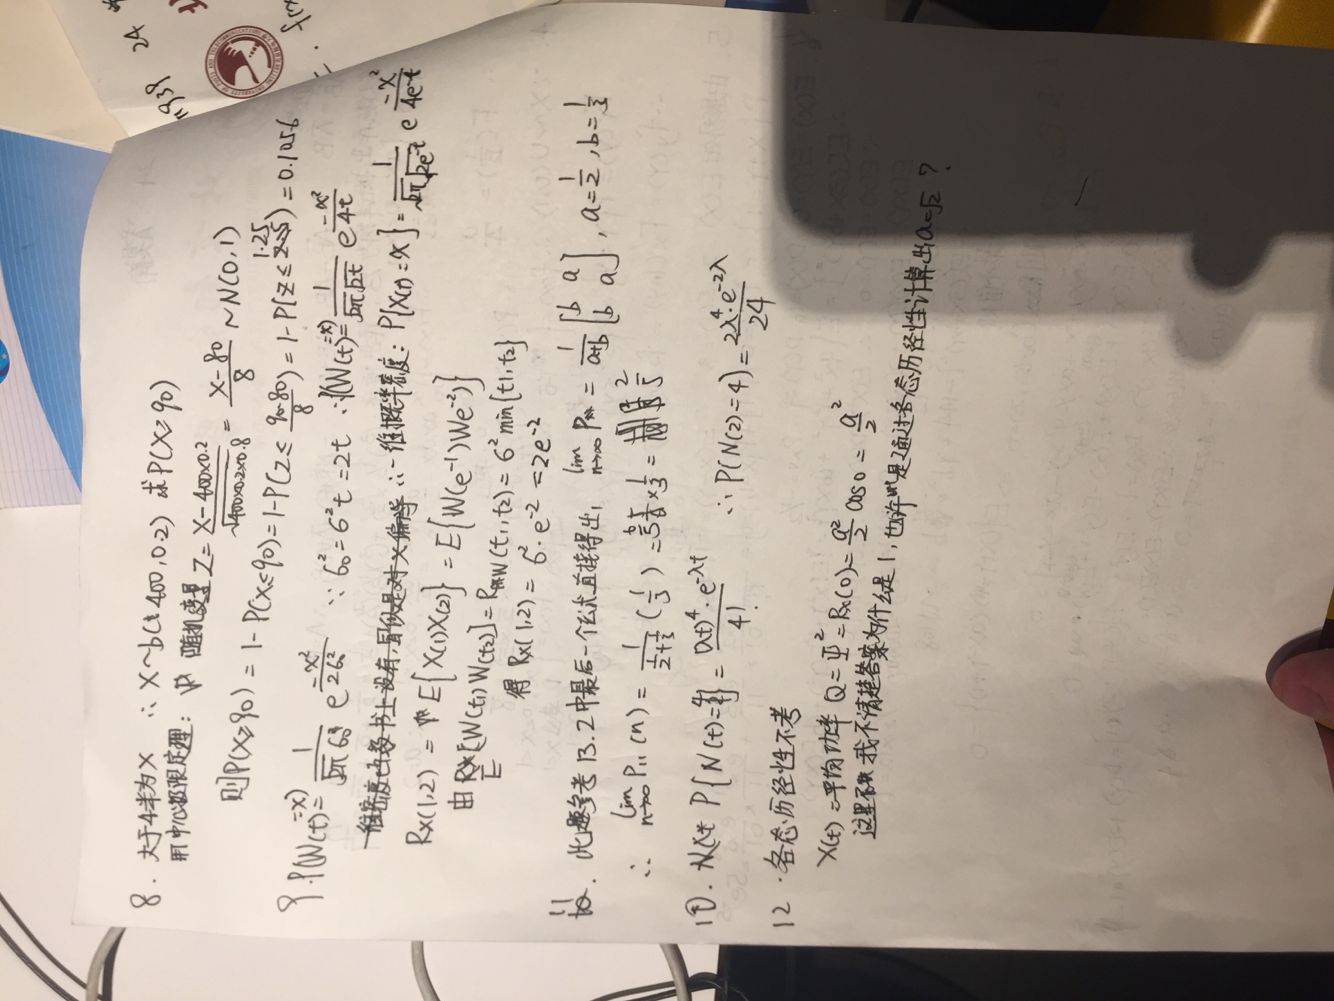 8. 大于4半为X ∴ X~b(400,0.2) 求P(X≥90)
用中心极限定理: 随机变量 Z = (X-400×0.2)/√(400×0.2×0.8) = (X-80)/8 ~N(0,1)
则P(X≥90) = 1-P(X≤90) = 1-P(Z≤ (90-80)/8) = 1-P(Z≤1.25) = 0.1056
9. P(W(t)=x) = 1/(√2π 6₀) e^(-x²/26₀²) ∵ 6₀²=6²t=2t ∴ P(W(t)=x) = 1/(√2π√2t) e^(-x²/4t)
∴一维概率密度: P{X(t)=x} = 1/(√2π√2e^-t) e^(-x²/4e^-t)
Rx(1,2) = E{X(1)X(2)} = E{W(e⁻¹)W(e⁻²)}
由E[W(t₁)W(t₂)] = Rw(t₁,t₂) = 6²min{t1,t2}
得 Rx(1,2) = 6²·e⁻² = 2e⁻²
11. 此题参考13.2中最后一个公式直接得出, lim n→∞ P = 1/(a+b) [b a; b a], a=1/2, b=1/3
∴ lim n→∞ P₁₁(n) = 1/(1/2+1/3) (1/3) = 6/5 × 1/3 = 2/5
10. P{N(t)=4} = (λt)⁴·e^-λt / 4! ∴ P(N(2)=4) = 2λ⁴·e^-2λ / 24
12. 各态历经性不考
X(t)=平均功率 Q=Ψ²=Rx(0) = a²/2 cos0 = a²/2
这里我不清楚答案为什么是1, 也许是通过各态历经性计算出a=√2?
939 24